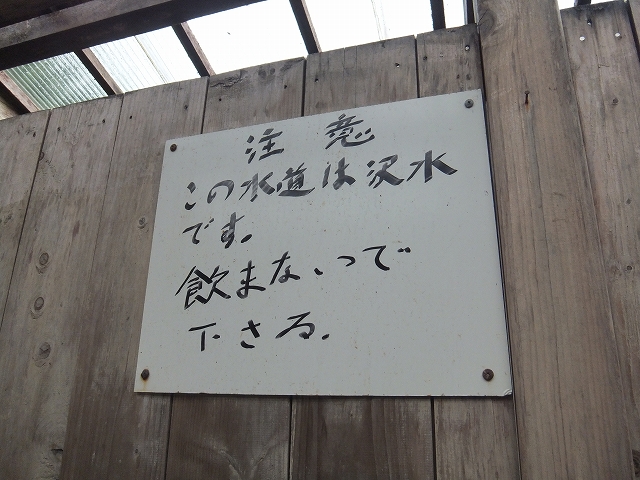 注意
この水道は沢水
です。
飲まないで
下さる。